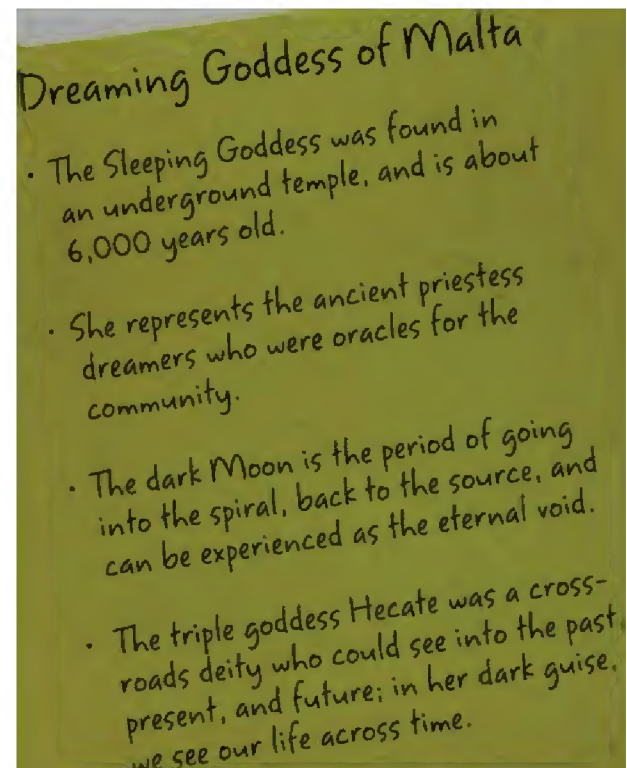 Dreaming Goddess of Malta
· The Sleeping Goddess was found in
an underground temple, and is about
6,000 years old.
· She represents the ancient priestess
dreamers who were oracles for the
community.
· The dark Moon is the period of going
into the spiral, back to the source, and
can be experienced as the eternal void.
· The triple goddess Hecate was a cross-
roads deity who could see into the past,
present, and future; in her dark guise,
we see our life across time.